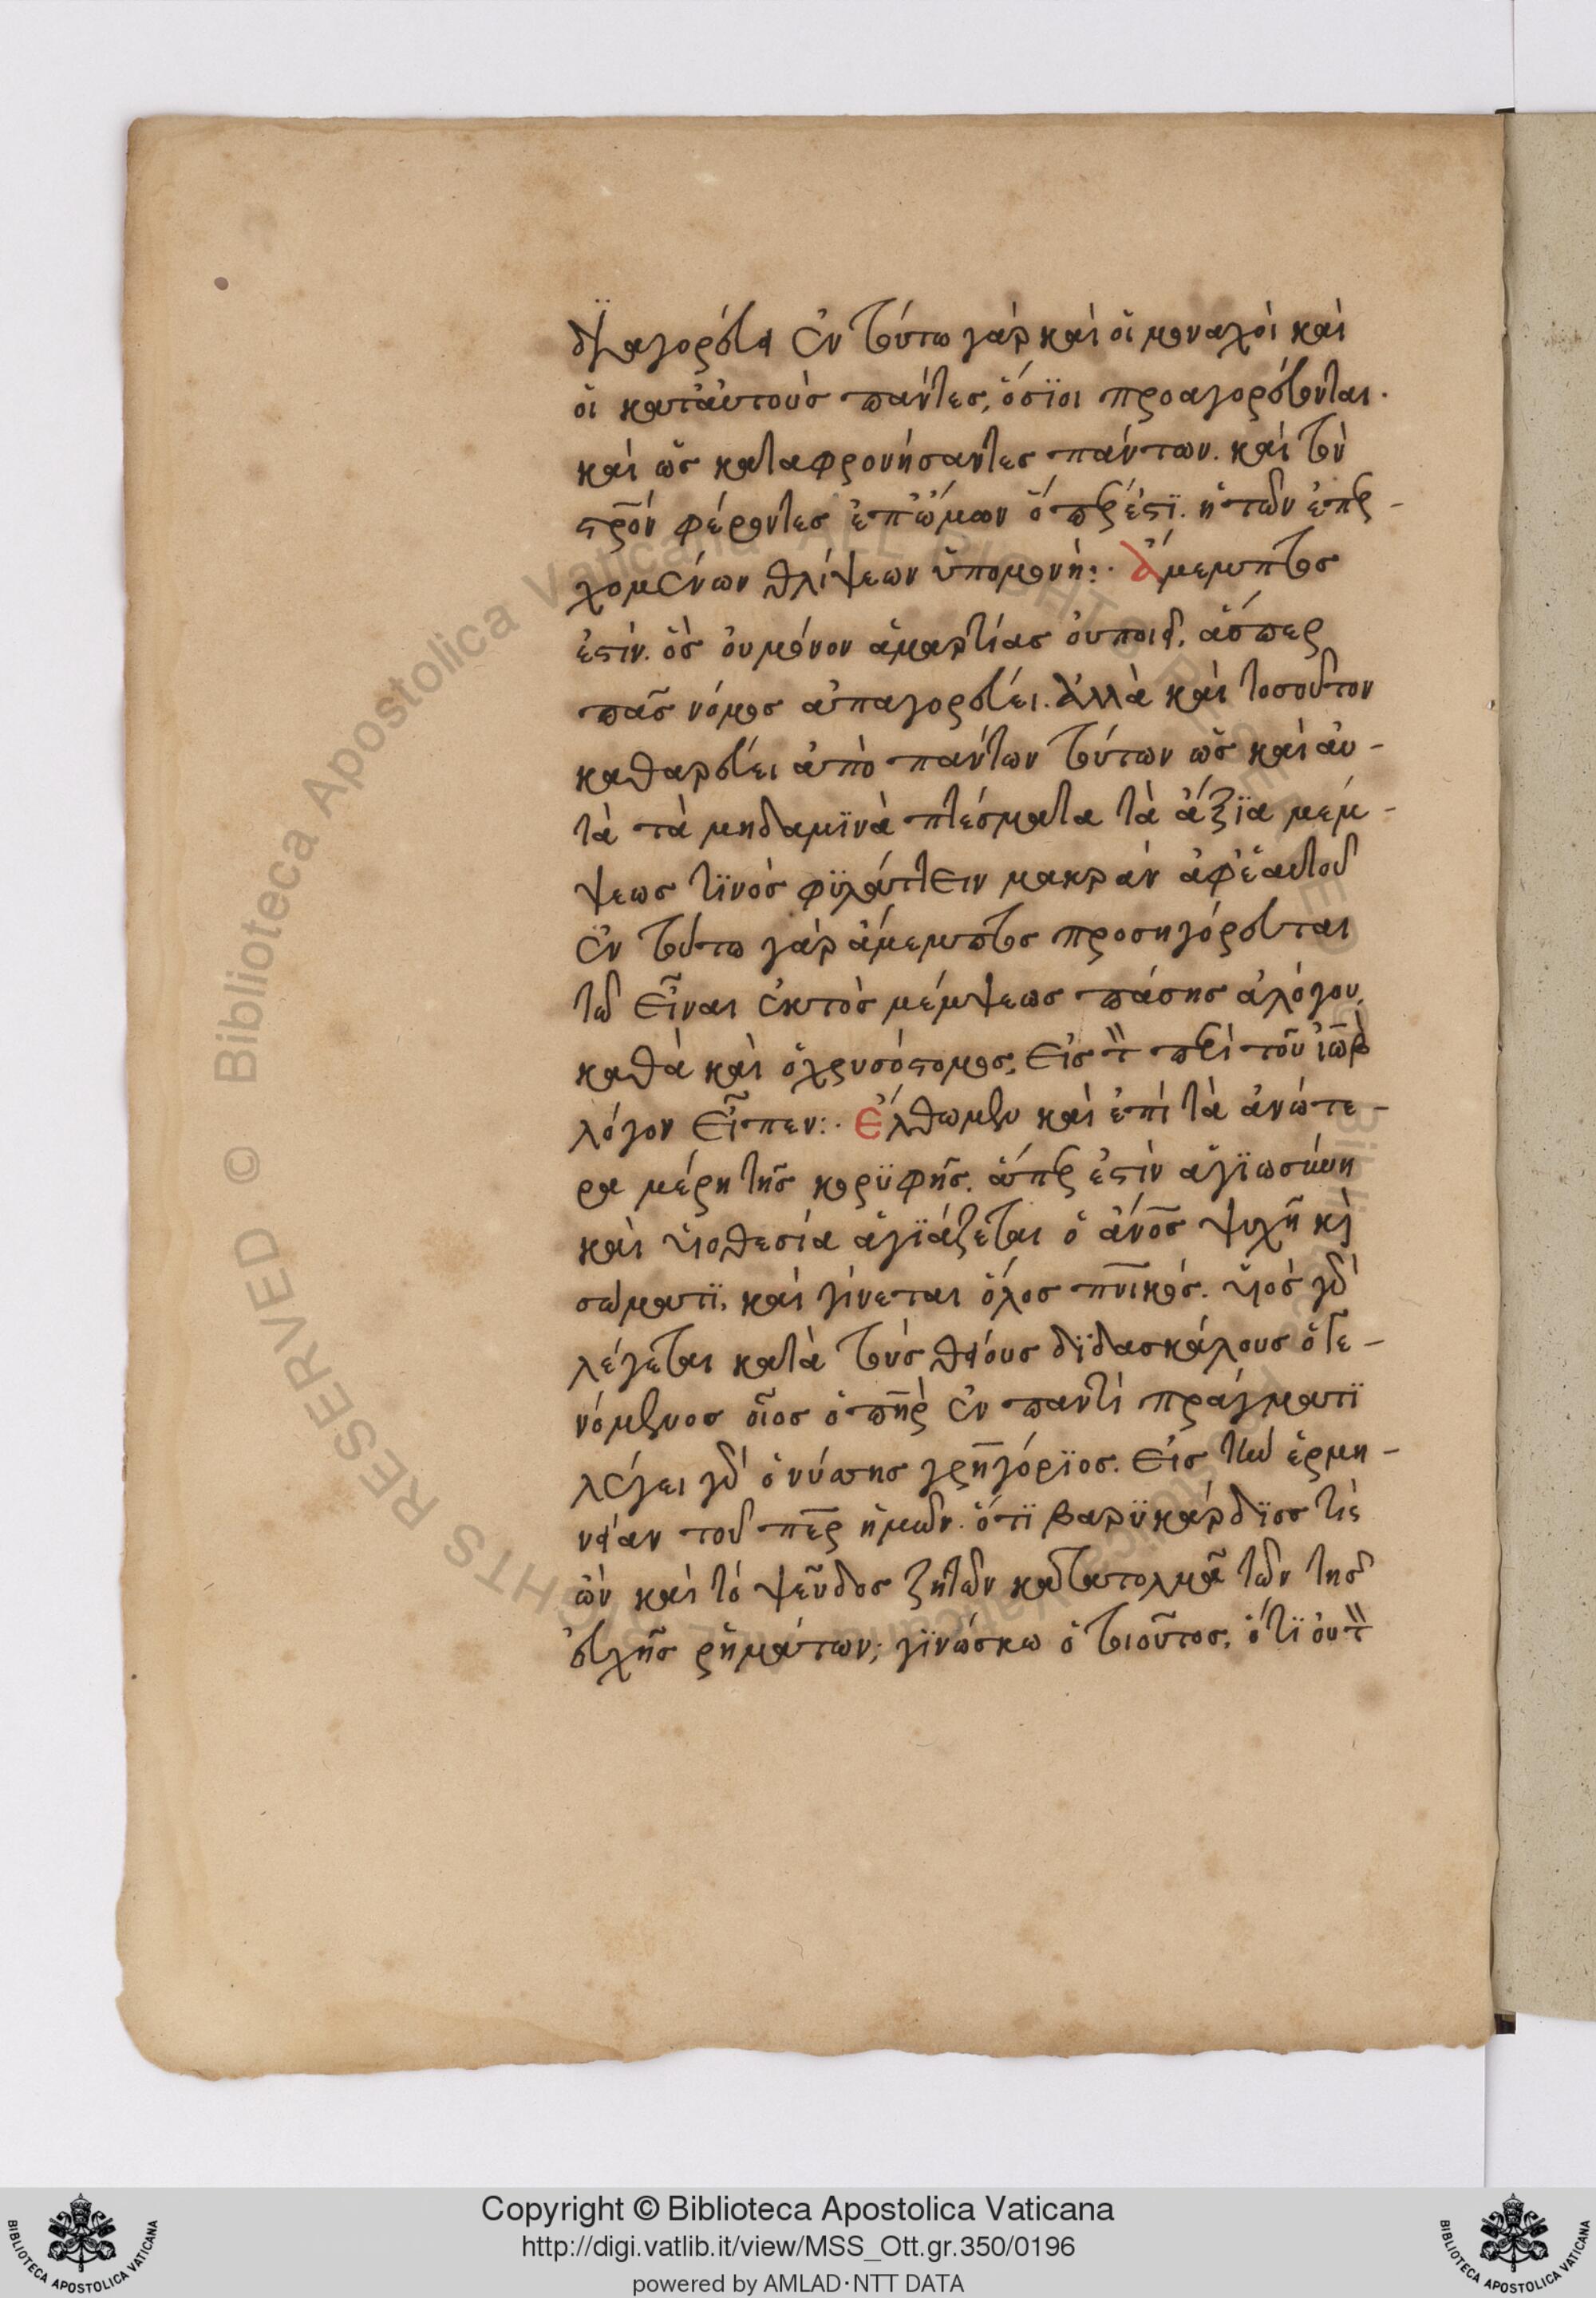 διαγορεύει ἐν τούτω γὰρ καὶ οἱ μοναχοὶ καὶ
οἱ κατ᾽αὐτοὺς πάντες, ὅσϊοι προαγορεύονται.
καὶ ὡς καταφρονήσαντες πάντων. καὶ τὸν
στρον φέροντες ἐπ᾽ὤμων ὅπερ ἐστϊ. ἡ τῶν ἐπερ-
χομένων θλίψεων ὑπομονή:· Ἄμεμπτος
ἐστίν. ὃς οὐ μόνον ἁμαρτίας οὐ ποιεῖ, ἅσπερ
πᾶς νόμος ἀπαγορεύει. ἀλλὰ καὶ τοσοῦτον
καθαρεύει ἀπὸ πάντων τούτων ὡς καὶ αὐ-
τὰ τὰ μηδαμϊνὰ πτέσματα τὰ ἄξϊα μέμ-
ψεως τϊνὸς φϋλάττειν μακρὰν ἀφ᾽ἑαυτοῦ
ἐν τούτω γὰρ ἄμεμπτος προσηγόρευται
τῶ εἶναι ἐκτὸς μέμψεως πάσης ἀλόγου,
καθὰ καὶ ὁ χρυσόστομος, εἰς τ περὶ τοῦ ἰὼβ
λόγον εἶπεν:· Ἔλθωμεν καὶ ἐπὶ τὰ ἀνώτε-
ρα μέρη τῆς κορϋφῆς. ἅπερ ἐστὶν ἁγϊωσύνη
καὶ υἱοθεσία ἁγϊάζεται ὁ ἄνος ψυχῆ κὶ
σώματϊ, καὶ γίνεται ὅλος πνικός. υἱὸς γὰρ
λέγεται κατὰ τοὺς θείους δϊδασκάλους ὁ γε-
νόμενος οἷος ὁ πηρ ἐν παντὶ πράγματϊ
λέγει γὰρ ὁ νύσης γρηγόρϊος. εἰς τὴν ἑρμη-
νείαν τοῦ περ ἡμῶν. ὅτϊ βαρϋκάρδϊος τὶς
ὢν καὶ τὸ ψεῦδος ζητῶν κατατολμᾶ τῶν τῆς
εὐχῆς ῥημάτων; γϊνώσκω ὁ τοιοῦτος, ὅτϊ οὐ τ
Copyright © Biblioteca Apostolica Vaticana
http://digi.vatlib.it/view/MSS_Ott.gr.350/0196
powered by AMLAD·NTT DATA